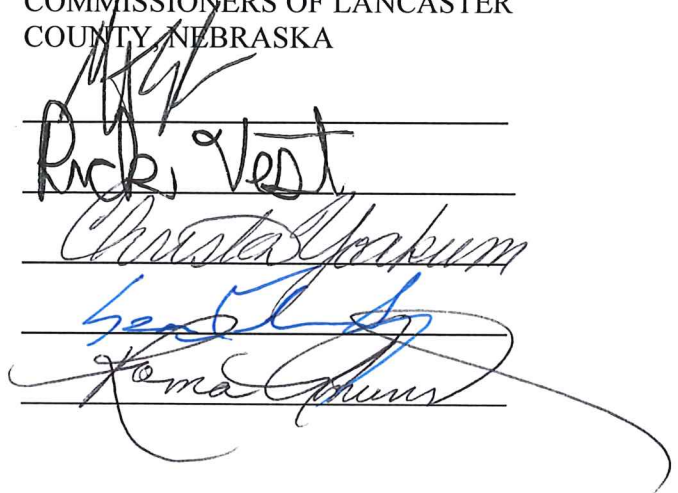 COMMISSIONERS OF LANCASTER
COUNTY, NEBRASKA
Rick Vest
Christa Yoakum
Sean
Roma